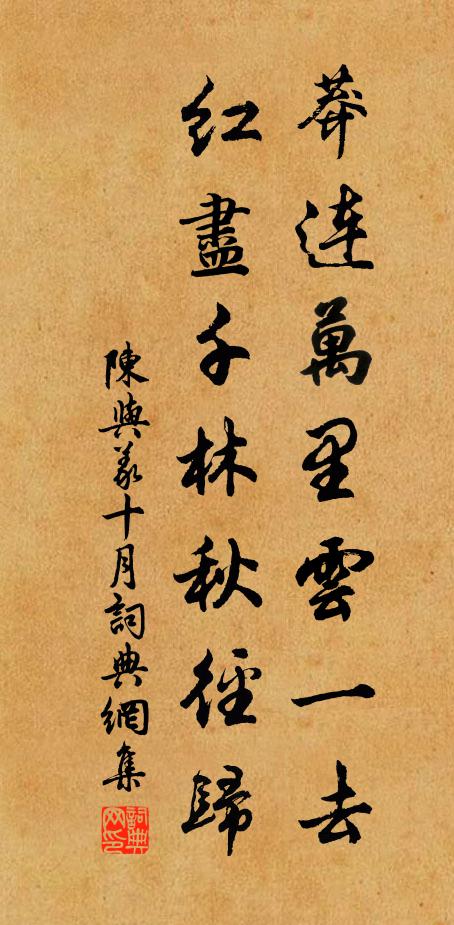 莽連萬里雲一去
紅盡千林秋徑歸
陳與義十月詞典網集
詞典
网印